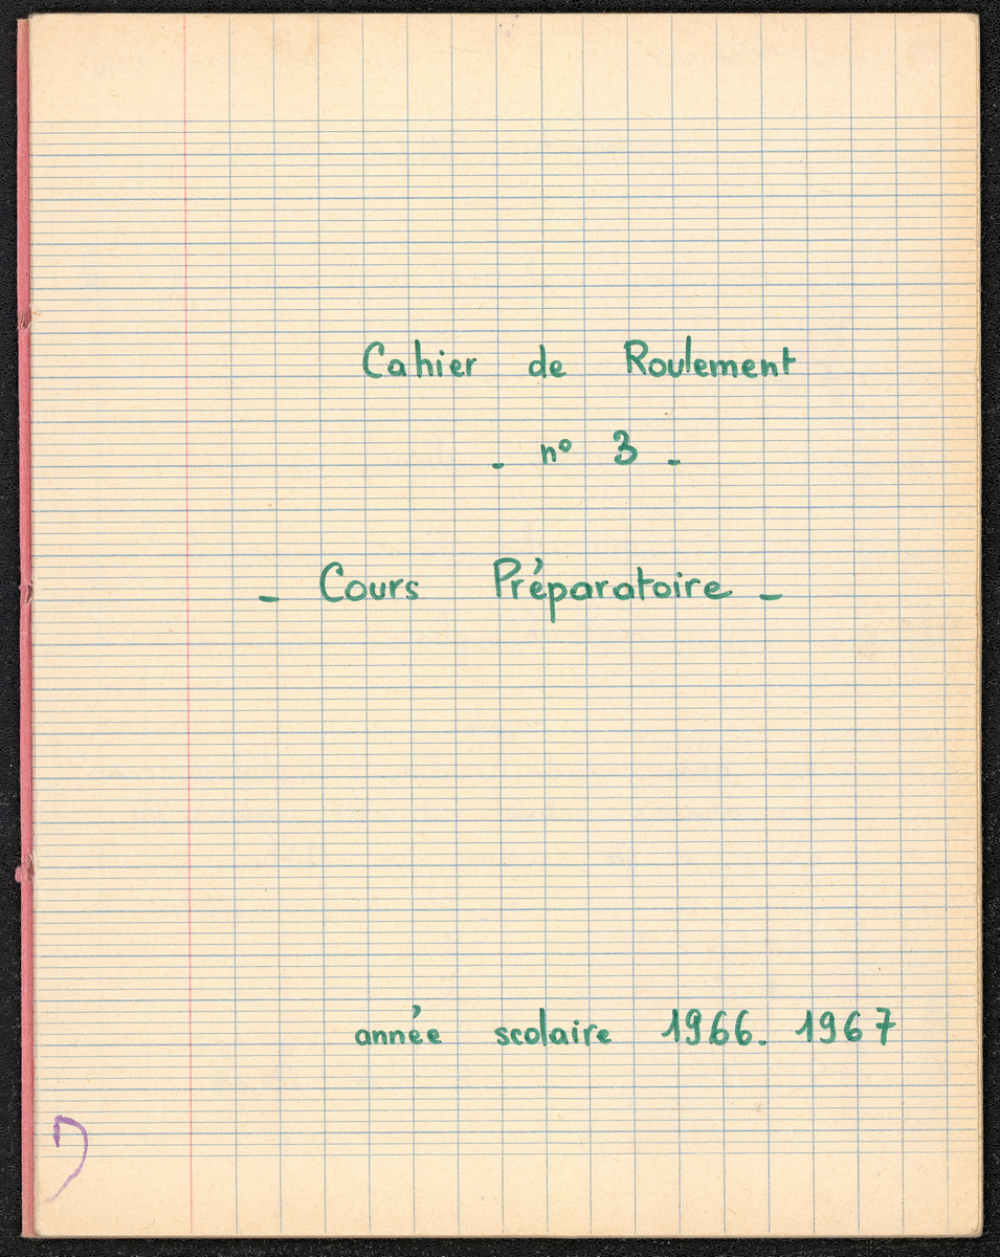 Cahier de Roulement
- n° 3 -
- Cours Préparatoire -
année scolaire 1966. 1967